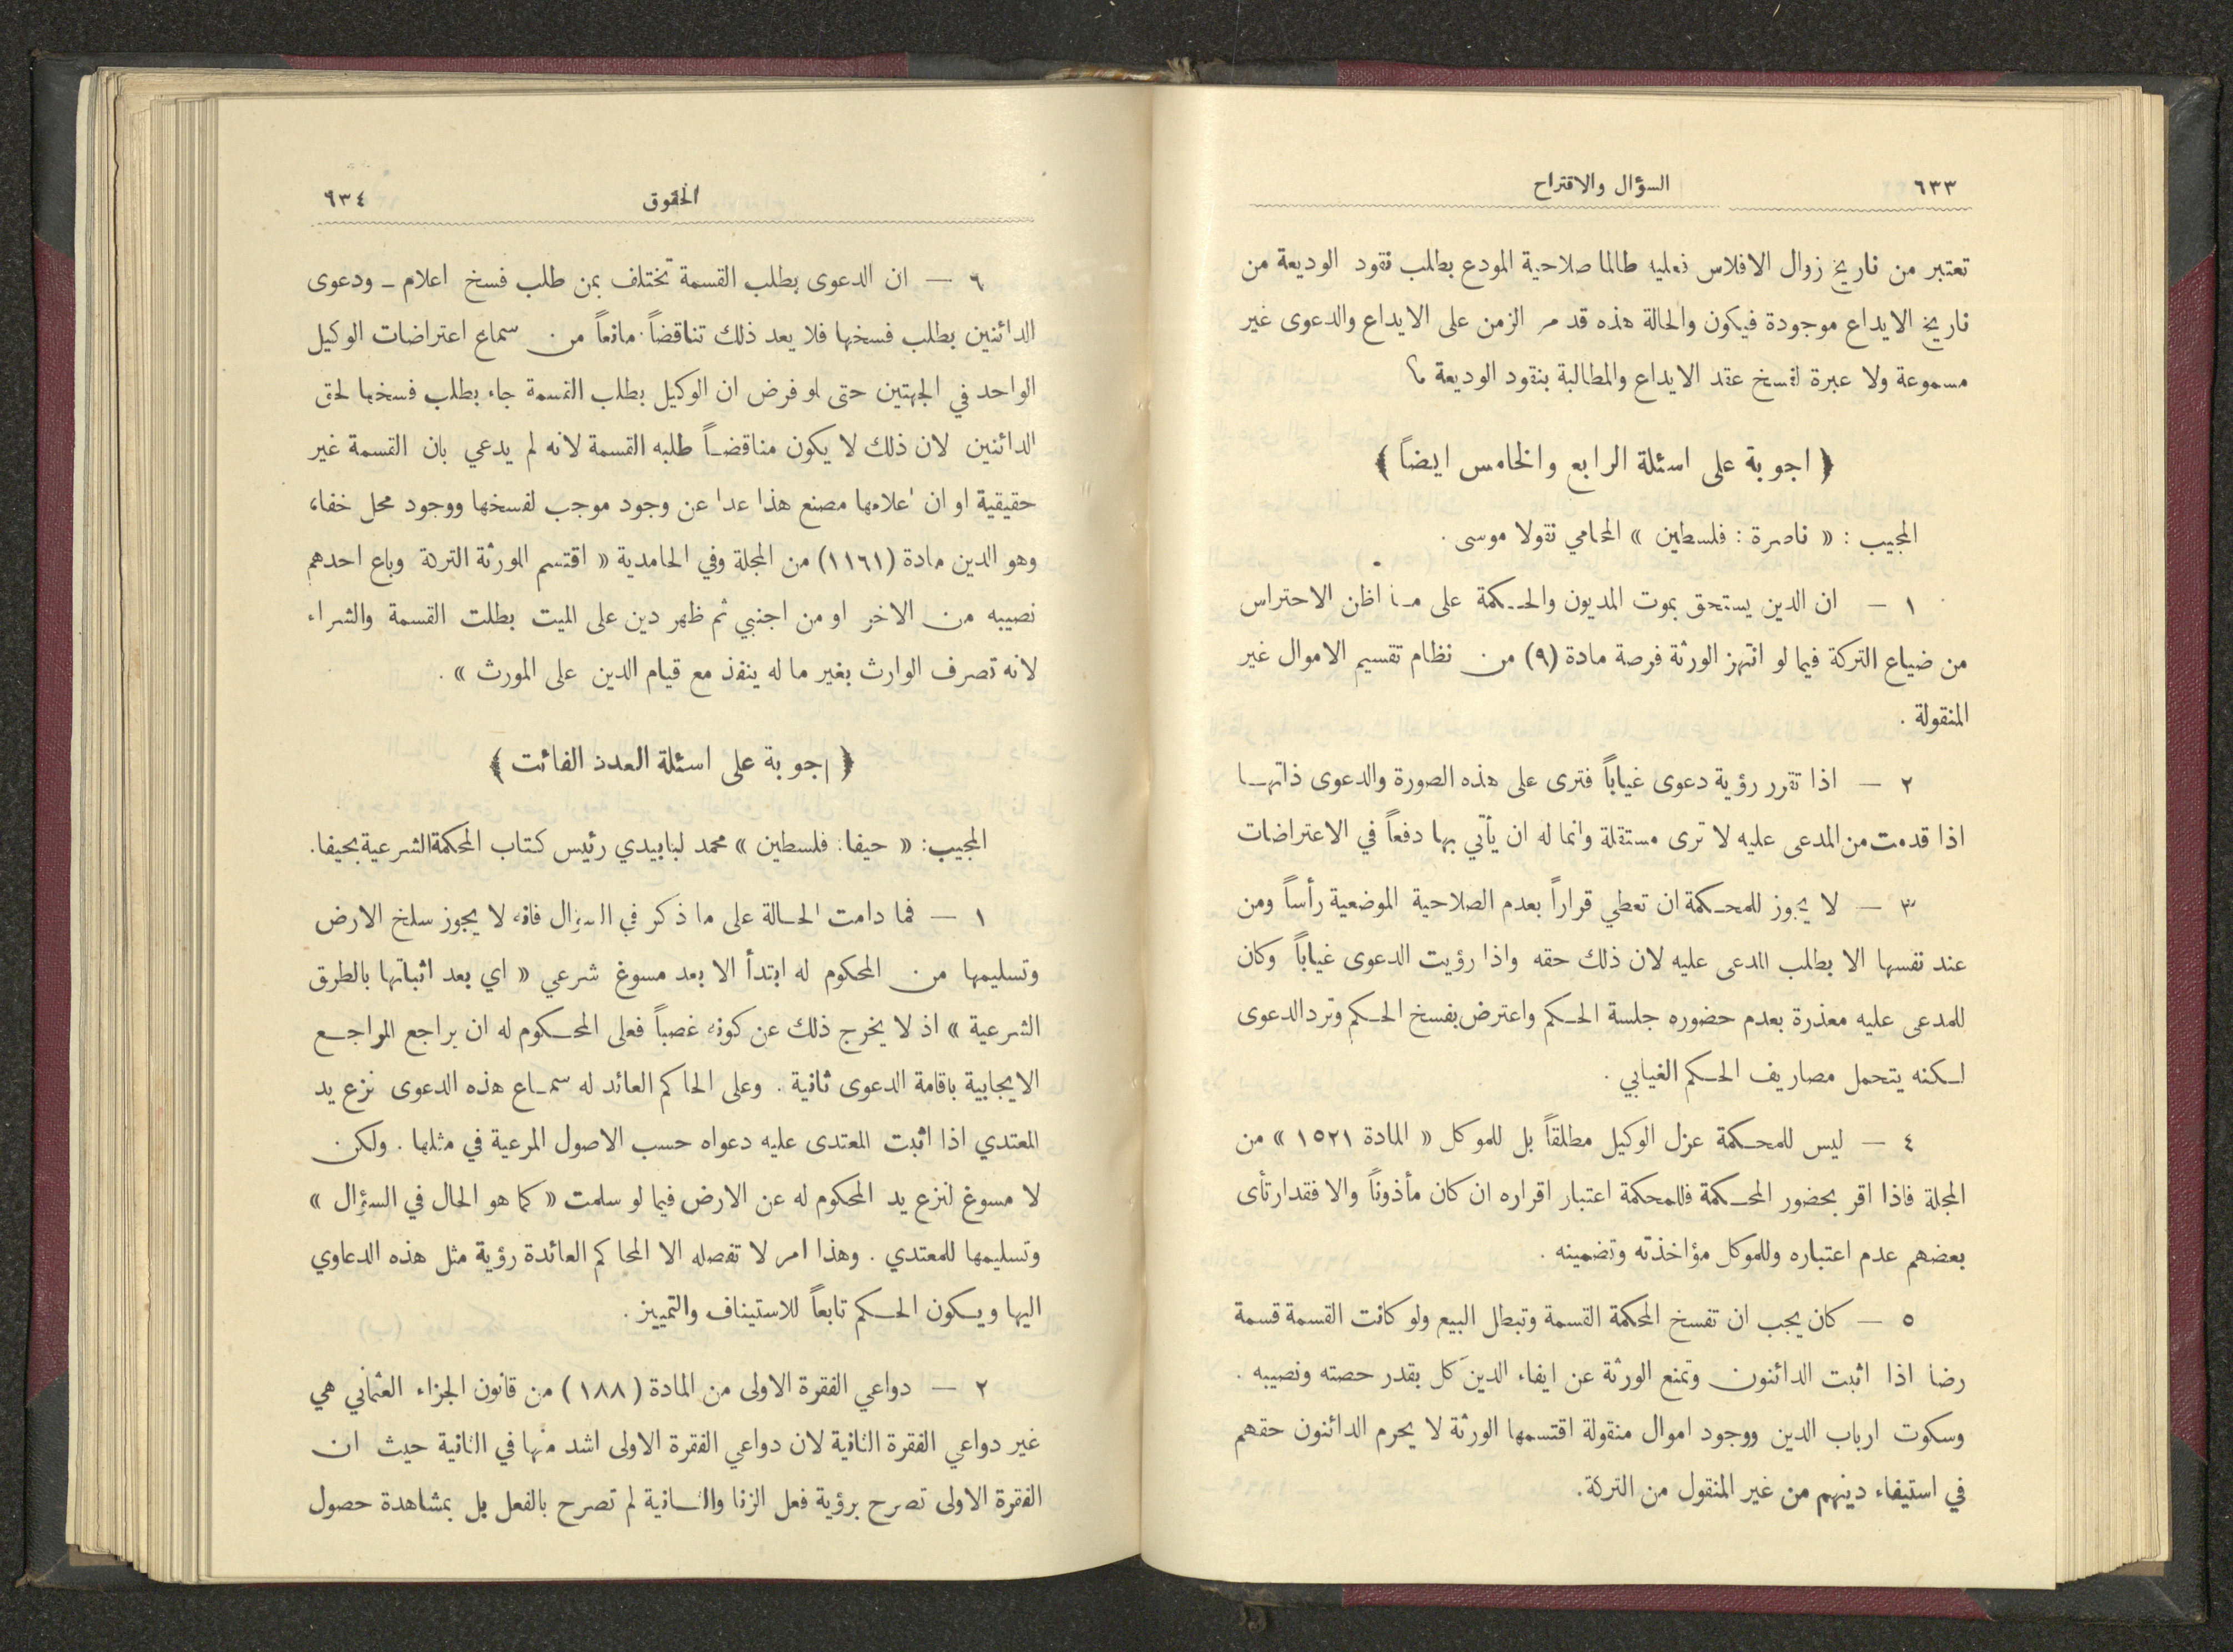 ٦٣٣
السؤال والاقتراح
تعتبر من تاريخ زوال الافلاس فعليه طالما صلاحية المودع بطلب نقود الوديعة من
تاريخ الايداع موجودة فيكون والحالة هذه قد مر الزمن على الايداع والدعوى غير
مسموعة ولا عبرة لفسخ عقد الايداع والمطالبة بنقود الوديعة ؟
﴿ اجوبة على اسئلة الرابع والخامس ايضاً ﴾
المجيب : « ناصرة : فلسطين » المحامي نقولا موسى .
١ — ان الدين يستحق بموت المديون والحكمة على ما اظن الاحتراس
من ضياع التركة فيما لو انتهز الورثة فرصة مادة (٩) من نظام تقسيم الاموال غير
المنقولة .
٢ — اذا تقرر رؤية دعوى غياباً فترى على هذه الصورة والدعوى ذاتها
اذا قدمت من المدعى عليه لا ترى مستقلة وانما له ان يأتي بها دفعاً في الاعتراضات
٣ — لا يجوز للمحكمة ان تعطي قراراً بعدم الصلاحية الموضعية رأساً ومن
عند نفسها الا بطلب المدعى عليه لان ذلك حقه واذا رؤيت الدعوى غياباً وكان
للمدعى عليه معذرة بعدم حضوره جلسة الحكم واعترض بفسخ الحكم وترد الدعوى
لكنه يتحمل مصاريف الحكم الغيابي .
٤ — ليس للمحكمة عزل الوكيل مطلقاً بل للموكل « المادة ١٥٢١ » من
المجلة فاذا اقر بحضور المحكمة فللمحكمة اعتبار اقراره ان كان مأذوناً والا فقد ارتأى
بعضهم عدم اعتباره وللموكل مؤاخذته وتضمينه .
٥ — كان يجب ان تفسخ المحكمة القسمة وتبطل البيع ولو كانت القسمة قسمة
رضا اذا اثبت الدائنون وتمنع الورثة عن ايفاء الدين كل بقدر حصته ونصيبه .
وسكوت ارباب الدين ووجود اموال منقولة اقتسمها الورثة لا يحرم الدائنون حقهم
في استيفاء دينهم من غير المنقول من التركة.
الحقوق
٦٣٤
٦ — ان الدعوى بطلب القسمة تختلف بمن طلب فسخ اعلام - ودعوى
الدائنين بطلب فسخها فلا يعد ذلك تناقضاً مانعاً من سماع اعتراضات الوكيل
الواحد في الجهتين حتى لو فرض ان الوكيل بطلب القسمة جاء بطلب فسخها لحق
الدائنين لان ذلك لا يكون مناقضاً طلبه القسمة لانه لم يدعي بان القسمة غير
حقيقية او ان اعلامها مصنع هذا عدا عن وجود موجب لفسخها ووجود محل خفاء،
وهو الدين مادة (١١٦١) من المجلة وفي الحامدية « اقتسم الورثة التركة وباع احدهم
نصيبه من الاخر او من اجنبي ثم ظهر دين على الميت بطلت القسمة والشراء
لانه تصرف الوارث بغير ما له ينفذ مع قيام الدين على المورث » .
﴿ اجوبة على اسئلة العدد الفائت ﴾
المجيب: « حيفا: فلسطين » محمد لبابيدي رئيس كتاب المحكمة الشرعية بحيفا.
١ — فما دامت الحالة على ما ذكر في السؤال فانه لا يجوز سلخ الارض
وتسليمها من المحكوم له ابتدأ الا بعد مسوغ شرعي « اي بعد اثباتها بالطرق
الشرعية » اذ لا يخرج ذلك عن كونه غصباً فعلى المحكوم له ان يراجع المراجع
الايجابية باقامة الدعوى ثانية . وعلى الحاكم العائد له سماع هذه الدعوى نزع يد
المعتدي اذا اثبت المعتدى عليه دعواه حسب الاصول المرعية في مثلها . ولكن
لا مسوغ لنزع يد المحكوم له عن الارض فيما لو سلمت « كما هو الحال في السؤال »
وتسليمها للمعتدي . وهذا امر لا تفصله الا المحاكم العائدة رؤية مثل هذه الدعاوي
اليها ويكون الحكم تابعاً للاستيناف والتمييز .
٢ — دواعي الفقرة الاولى من المادة (١٨٨) من قانون الجزاء العثماني هي
غير دواعي الفقرة الثانية لان دواعي الفقرة الاولى اشد منها في الثانية حيث ان
الفقرة الاولى تصرح برؤية فعل الزنا والثانية لم تصرح بالفعل بل بمشاهدة حصول